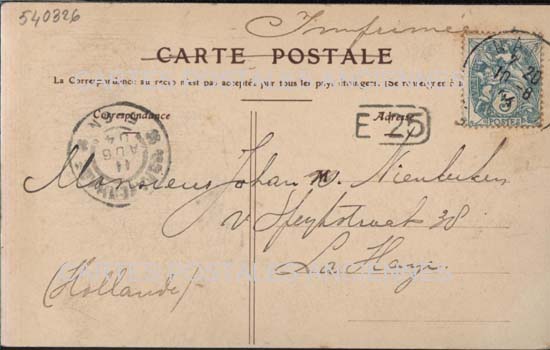 540326
Imprimé
CARTE POSTALE
La Correspondance au recto n'est pas acceptée par tous les pays étrangers. (Se renseigner à la
Correspondance
Adresse
E 25
POSTES
11 AUG 04
Monsieur Johan
v Speykstraat 38
La Haye
(Hollande)